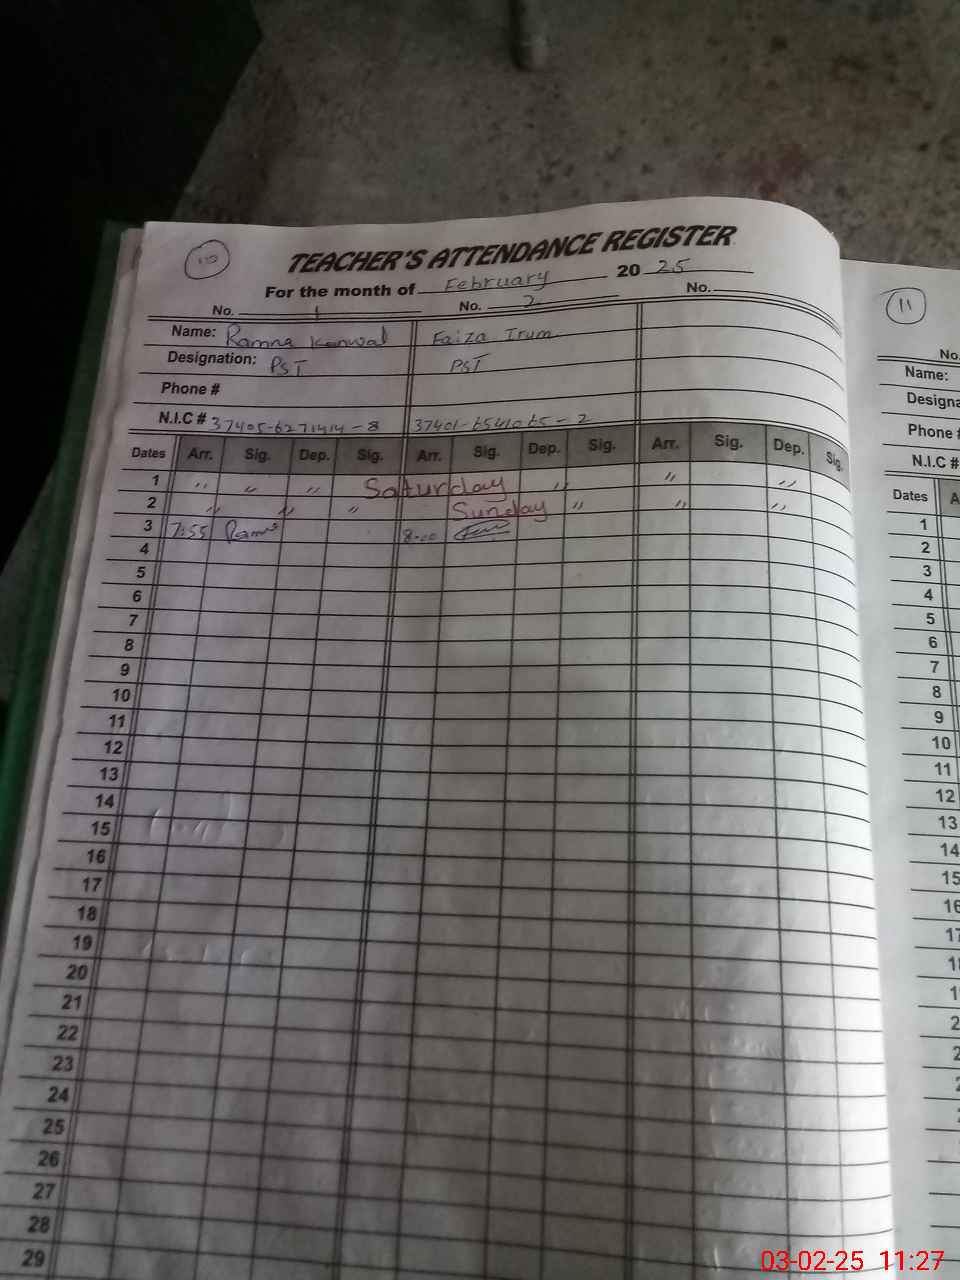 TEACHER'S ATTENDANCE REGISTER
For the month of February 20 25
No. 1 No. 2 No.
Name: Ramna Kanwal Faiza Irum
Designation: PST PST
Phone #
N.I.C # 37405-6271414-8 37401-6541065-2
Dates Arr. Sig. Dep. Sig. Arr. Sig. Dep. Sig. Arr. Sig. Dep. Sig.
1 " " " Saturday " " "
2 " " " Sunday " " "
3 7:55 Ramna 8:00
4
5
6
7
8
9
10
11
12
13
14
15
16
17
18
19
20
21
22
23
24
25
26
27
28
29
11
No.
Name:
Designa
Phone #
N.I.C #
Dates A
1
2
3
4
5
6
7
8
9
10
11
12
13
14
15
16
17
03-02-25 11:27